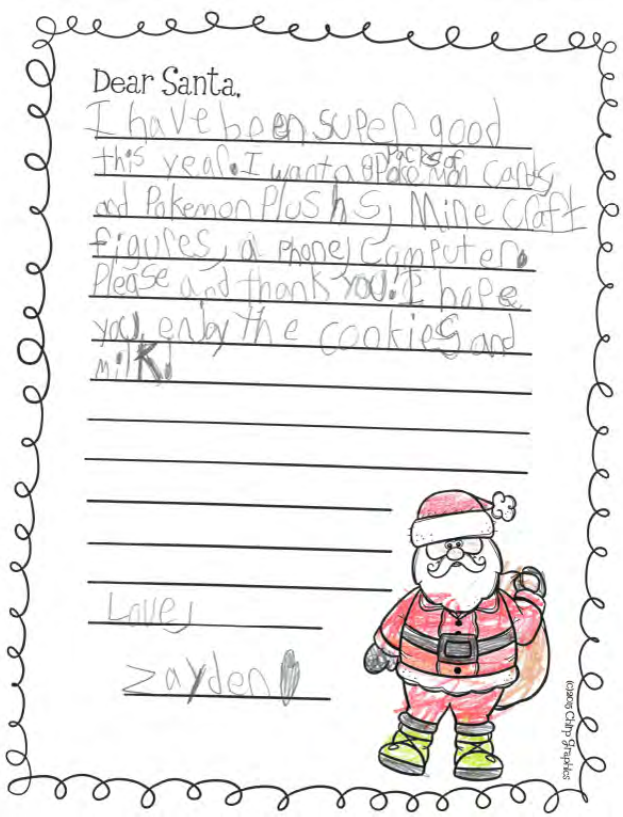 Dear Santa,
I have been super good
this year. I want a packs of Pokemon cards,
and Pokemon Plushs, Mine craft
figures, a phone, Computer.
Please and thank you! I hope
you enby the cookies and
milk!
Love,
Zayden
(c)2015 Chirp Graphics